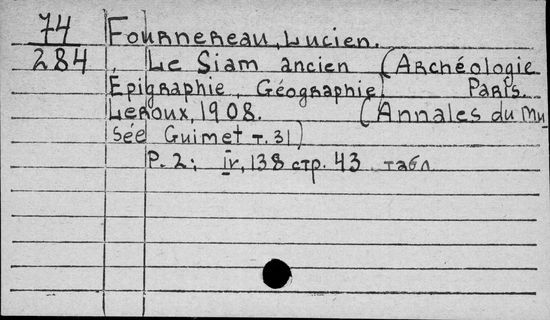 74
284
Fournereau, Lucien.
Le Siam ancien (Archéologie
Épigraphie, Géographie) Paris.
Leroux, 1908. (Annales du Mu
sée Guimet т. 31)
P. 2: IV, 138 стр. 43 табл.